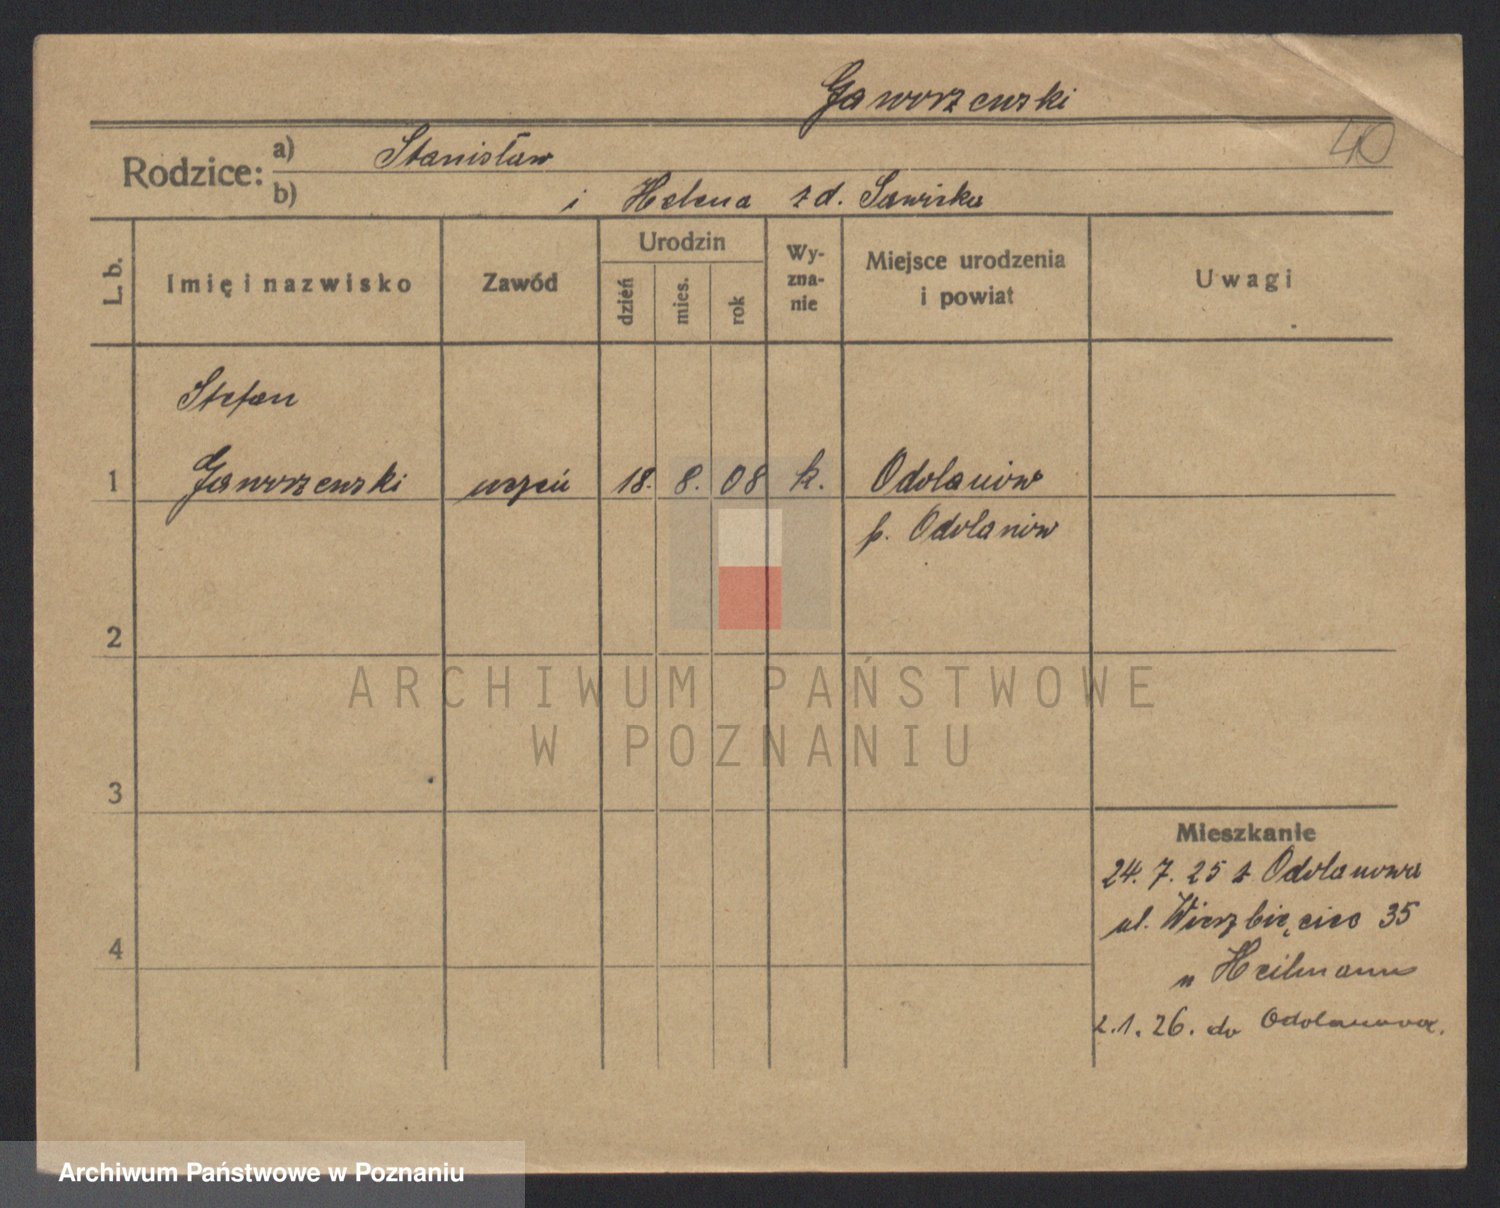 Jaworzewski
40
Rodzice: a) Stanisław
b) i Helena z d. Sawicka
L. b. Imię i nazwisko Zawód Urodzin dzień mies. rok Wy-zna-nie Miejsce urodzenia i powiat Uwagi
Stefan
1 Jaworzewski uczeń 18. 8. 08 k. Odolanów
p. Odolanów
2
ARCHIWUM PAŃSTWOWE
W POZNANIU
3
Mieszkanie
24. 7. 25 z Odolanowa
ul. Wierzbięcice 35
u Heilmann
4
2.1.26. do Odolanowa.
Archiwum Państwowe w Poznaniu